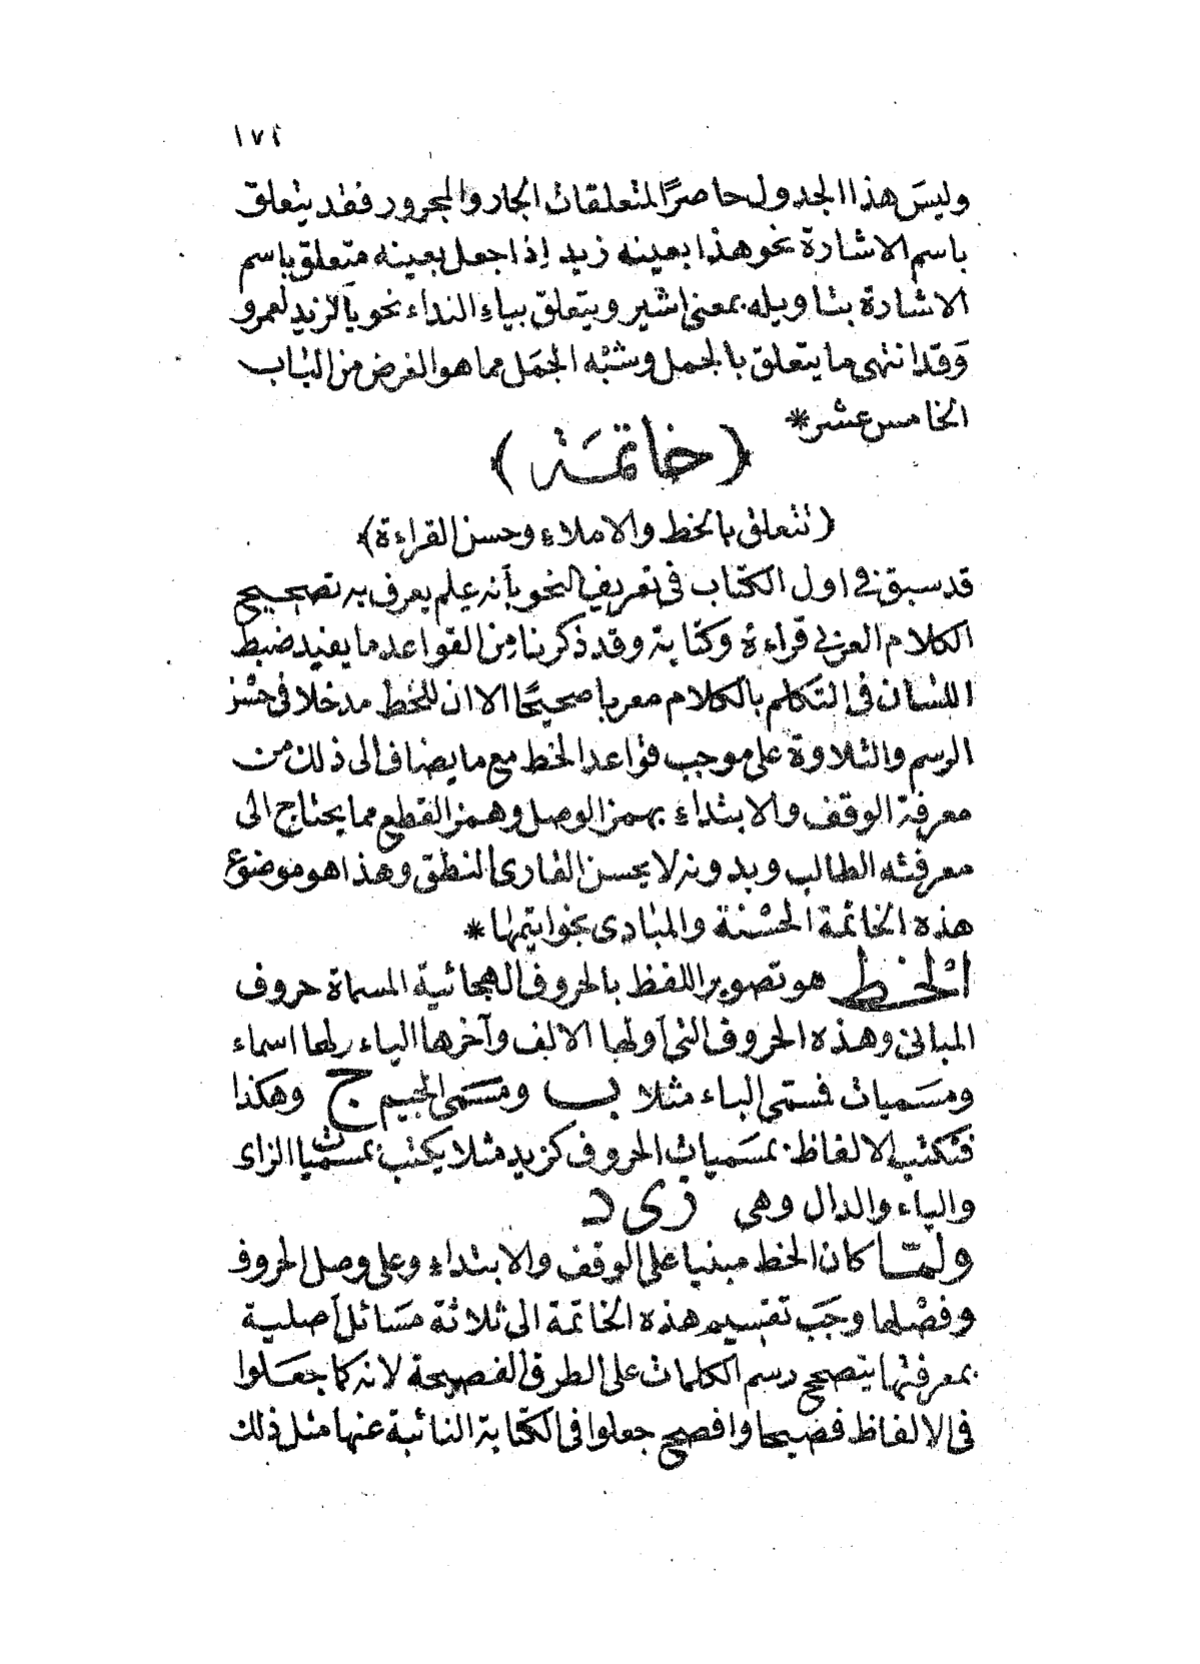 ١٧٤
وليسَ هذا الجدول حاصرًا لمتعلقات الجار والمجرور فقد يتعلق
باسم الاشارة نحو هذا بعينه زيد إذا جعل بعينه متعلق باسم
الاشارة بتاويله بمعنى اشير ويتعلق بياء النداء نحو يالزيد لعمرو
وَقد انتهى ما يتعلق بالجمل وشبْه الجمَل مما هو الغرض من الباب
الخامس عشر *
(خاتمَة)
(تتعلق بالخط والاملاء وحسن القراءة)
قد سبق في اول الكتاب في تعريف النحو بأنه علم يعرف به تصحيح
الكلام العربي قراءة وكتابة وقد ذكرنا من القواعد ما يفيد ضبط
اللسان في التكلم بالكلام معربا صحيحًا الا ان للخط مدخلا في حسْن
الرسم والتلاوة على موجب قواعد الخط مع ما يضاف الى ذلك من
معرفة الوقف والابتداء بهمز الوصل وهمز القطع مما يحتاج الى
معرفته الطالب وبدونه لا يحسن القارئ النطق وهذا هو موضوع
هذه الخاتمة الحسْنة والمبادى بخواتيمها *
الخط هو تصوير اللفظ بالحروف الهجائية المسماة حروف
المبانى وهذه الحروف التى أولها الالف وآخرها الياء لها اسماء
ومسَميات فمسمى الباء مثلا ب ومسَمى الجيم ج وهكذا
فتكتب الالفاظ بمسَميات الحروف كزيد مثلا يكتب بمسميات الزاى
والياء والدال وهى ز ى د
ولمّا كان الخط مبنيا على الوقف والابتداء وعلى وصل الحروف
وفصْلها وجَب تقسيم هذه الخاتمة الى ثلاثة مسَائل أصلية
بمعرفتها يتصحح رسم الكلمات على الطرق الفصيحة لانه كما جعَلوا
فى الالفاظ فصيحا وافصح جعلوا فى الكتابة النائبة عنها مثل ذلك